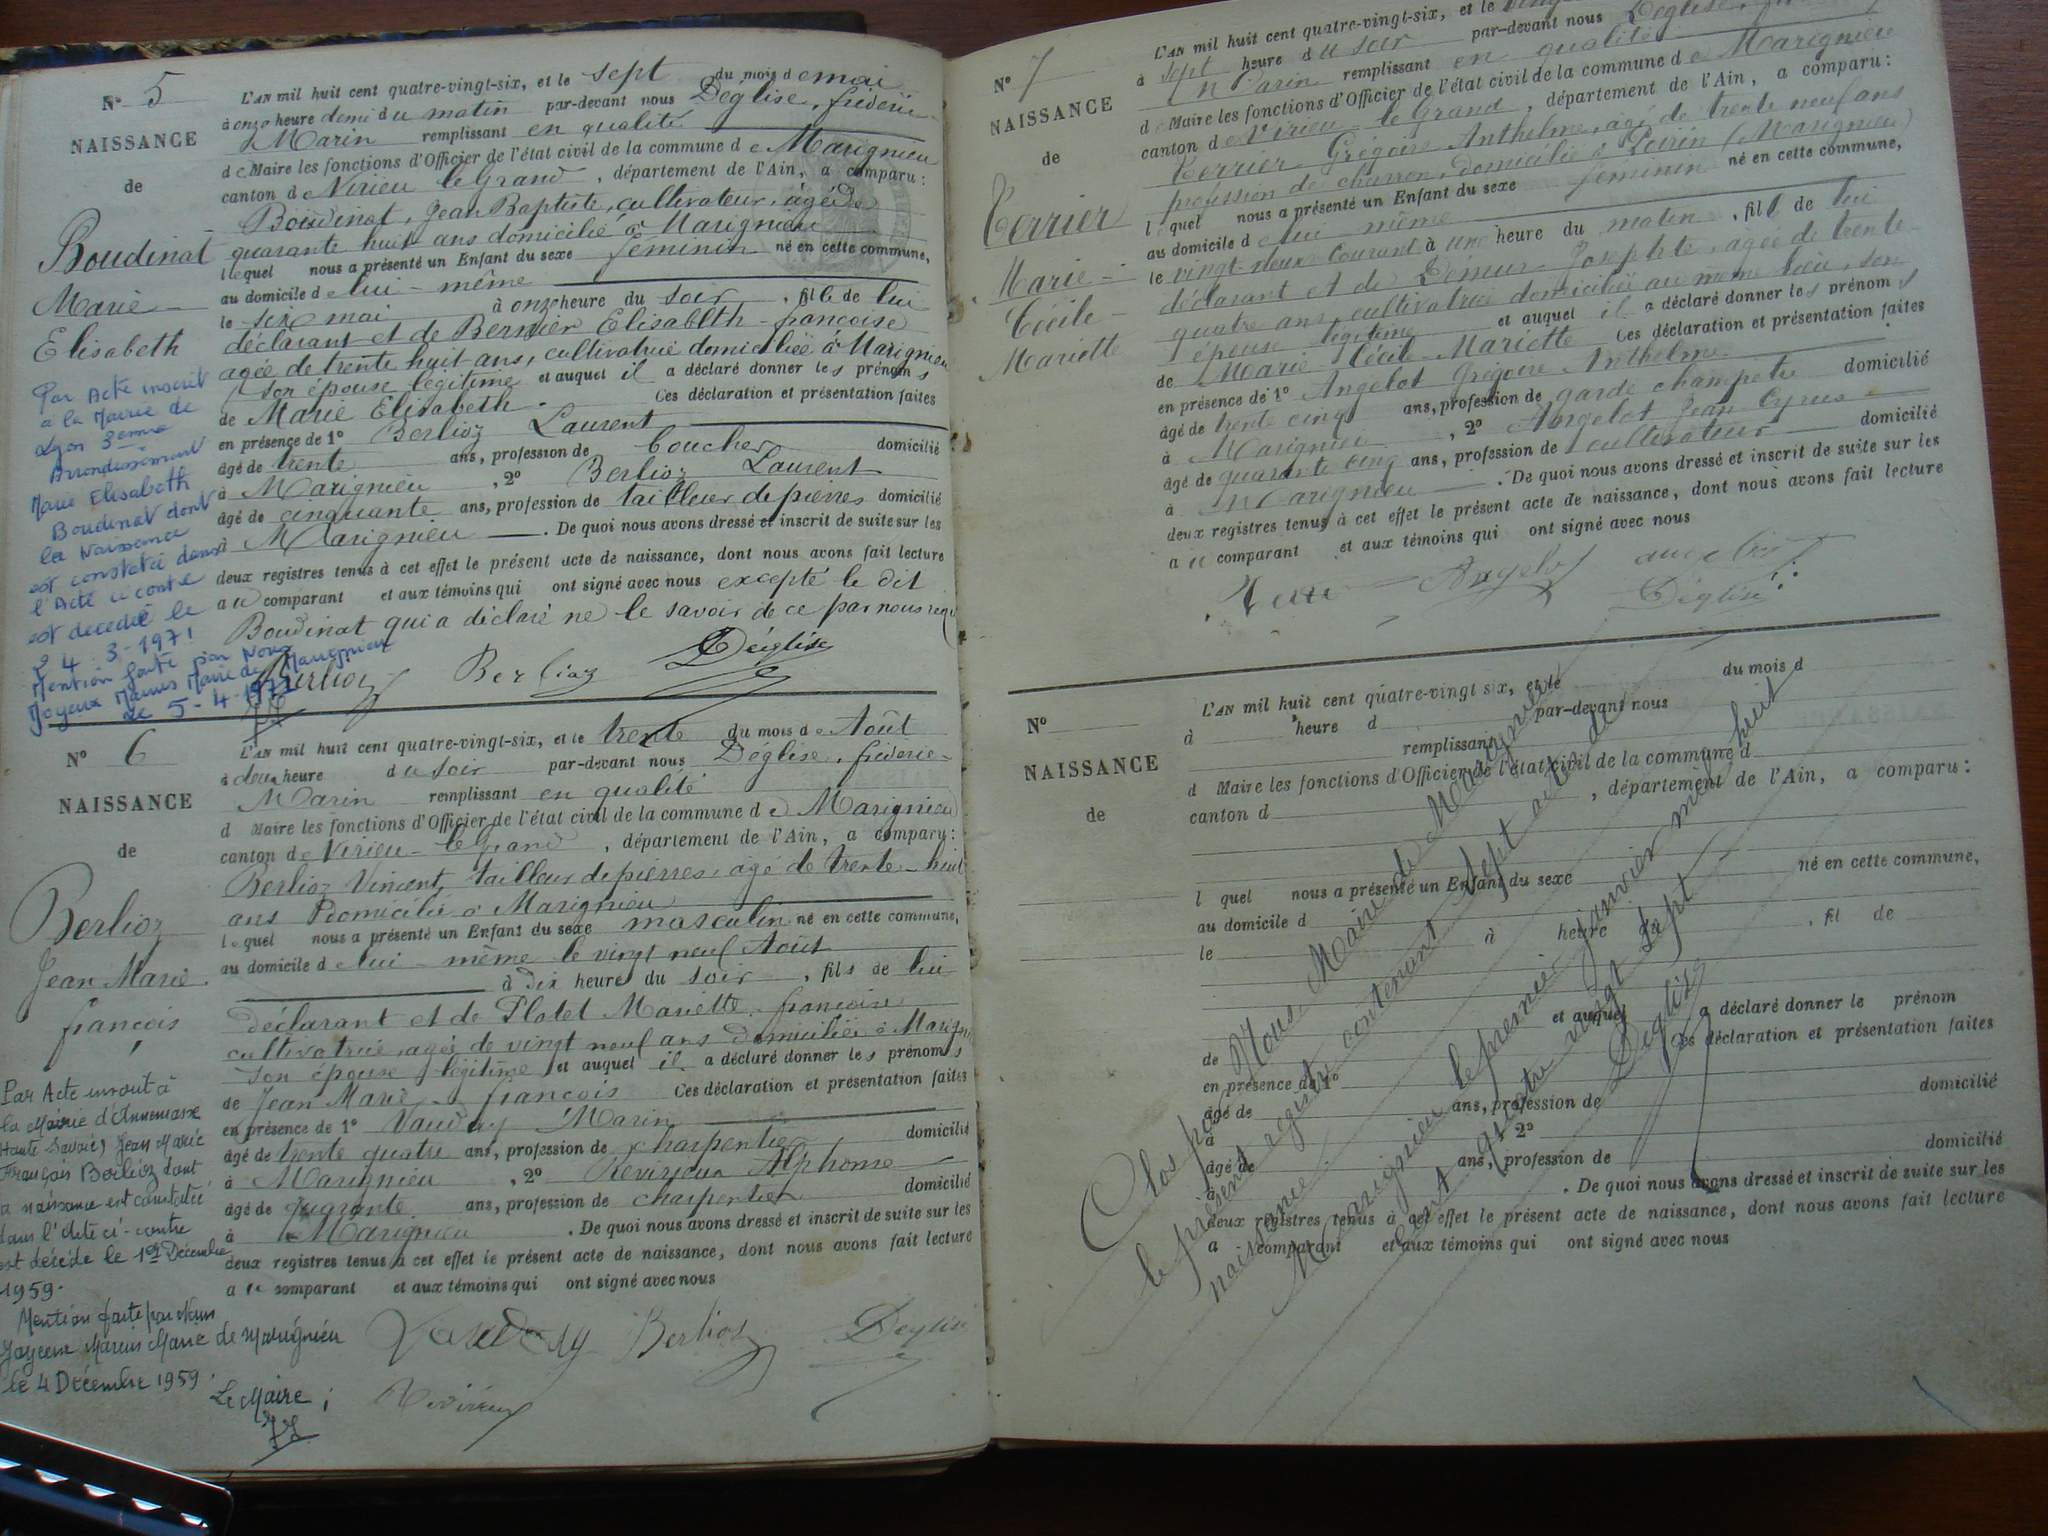 N° 5
NAISSANCE
de
Boudinat
Marie
Elisabeth
Par Acte inscrit
à la Mairie de
Lyon 3eme
Arrondissement
Marie Elisabeth
Boudinat dont
la Naissance
est constatée dans
l'Acte ci contre
est décédée le
24-3-1971
Mention faite par Nous
Joyeux Marius Maire de Marignieu
le 5-4-1971
L'AN mil huit cent quatre-vingt-six, et le sept du mois de mai
à onze heure demi du matin par-devant nous Déglise, fréderic
Marin remplissant en qualité
de Maire les fonctions d'Officier de l'état civil de la commune de Marignieu
canton de Virieu le Grand, département de l'Ain, a comparu:
Boudinat, Jean Baptiste, cultivateur, âgé de
quarante huit ans domicilié à Marignieu
lequel nous a présenté un Enfant du sexe feminin né en cette commune,
au domicile de lui-même
le six mai à onze heure du soir, fille de lui
déclarant et de Bernier Elisabeth francoise
agée de trente huit ans, cultivatrice domiciliée à Marignieu
son épouse legitime et auquel il a déclaré donner les prénoms
de Marie Elisabeth. Ces déclaration et présentation faites
en présence de 1° Berlioz Laurent
âgé de trente ans, profession de boucher domicilié
à Marignieu, 2° Berlioz Laurent
âgé de cinquante ans, profession de tailleur de pierres domicilié
à Marignieu. De quoi nous avons dressé et inscrit de suite sur les
deux registres tenus à cet effet le présent acte de naissance, dont nous avons fait lecture
au comparant et aux témoins qui ont signé avec nous excepté le dit
Boudinat qui a déclaré ne le savoir de ce par nous requi
Berlioz Berlioz Déglise
N° 6
NAISSANCE
de
Berlioz
Jean Marie
françois
Par Acte inscrit à
la Mairie d'Annemasse
Haute Savoie) Jean Marie
François Berlioz dont
la naissance est constatée
dans l'Acte ci-contre
est décédé le 1er Décembre
1959.
Mention faite par Nous
Joyeux Marius Maire de Marignieu
le 4 Décembre 1959.
Le Maire;
L'AN mil huit cent quatre-vingt-six, et le trente du mois de Août
à deux heure du soir par-devant nous Déglise, fréderic
Marin remplissant en qualité
d Maire les fonctions d'Officier de l'état civil de la commune de Marignieu
canton de Virieu-le Grand, département de l'Ain, a comparu:
Berlioz Vincent, tailleur de pierres, agé de trente-huit
ans Domicilié à Marignieu
lequel nous a présenté un Enfant du sexe masculin né en cette commune,
au domicile de lui-même le vingt neuf Août
à dix heure du soir, fils de lui
déclarant et de Platel Mariette francoise
cultivatrice, agée de vingt neuf ans domiciliée à Marigni
son épouse légitime et auquel il a déclaré donner les prénoms
de Jean Marie françois Ces déclaration et présentation faites
en présence de 1° Vauday Marin
âgé de trente quatre ans, profession de charpentier domicilié
à Marignieu, 2° Revirieux Alphonse
âgé de quarante ans, profession de charpentier domicilié
à Marignieu. De quoi nous avons dressé et inscrit de suite sur les
deux registres tenus à cet effet le présent acte de naissance, dont nous avons fait lecture
au comparant et aux témoins qui ont signé avec nous
Vauday Berlioz Déglise
Revirieux
N° 7
NAISSANCE
de
Terrier
Marie
Cécile
Mariette
L'AN mil huit cent quatre-vingt-six, et le
à sept heure du soir par-devant nous Déglise,
Marin remplissant en qualité
de Maire les fonctions d'Officier de l'état civil de la commune de Marignieu
canton de Virieu le Grand, département de l'Ain, a comparu:
Terrier Grégoire Anthelme, agé de trente neuf ans
profession de charron, domicilié à Poirin (Marignieu)
lequel nous a présenté un Enfant du sexe feminin né en cette commune,
au domicile de lui même
le vingt-deux courant à une heure du matin, fille de lui
déclarant et de Josephte, agée de trente
quatre ans, cultivatrice domiciliée au même lieu, son
épouse légitime et auquel il a déclaré donner les prénoms
de Marie Cécile Mariette Ces déclaration et présentation faites
en présence de 1° Angelot Grégoire Anthelme
âgé de trente cinq ans, profession de garde champetre domicilié
à Marignieu, 2° Angelot Jean Cyrus
âgé de quarante cinq ans, profession de cultivateur domicilié
à Marignieu. De quoi nous avons dressé et inscrit de suite sur les
deux registres tenus à cet effet le présent acte de naissance, dont nous avons fait lecture
au comparant et aux témoins qui ont signé avec nous
Angelot Déglise
N°
NAISSANCE
de
L'AN mil huit cent quatre-vingt six, et le du mois d
à heure d par-devant nous
remplissant
d Maire les fonctions d'Officier de l'état civil de la commune d
canton d , département de l'Ain, a comparu:
l quel nous a présenté un Enfant du sexe né en cette commune,
au domicile d
le à heure du , fil de
et auquel a déclaré donner le prénom
de Ces déclaration et présentation faites
en présence de 1°
âgé de ans, profession de domicilié
à 2°
âgé de ans, profession de domicilié
à . De quoi nous avons dressé et inscrit de suite sur les
deux registres tenus à cet effet le présent acte de naissance, dont nous avons fait lecture
a comparant et aux témoins qui ont signé avec nous
Clos par Nous Maire de Marignieu
le présent registre contenant sept acte de
naissance
Marignieu le premier janvier mil huit
cent quatre vingt sept
Déglise